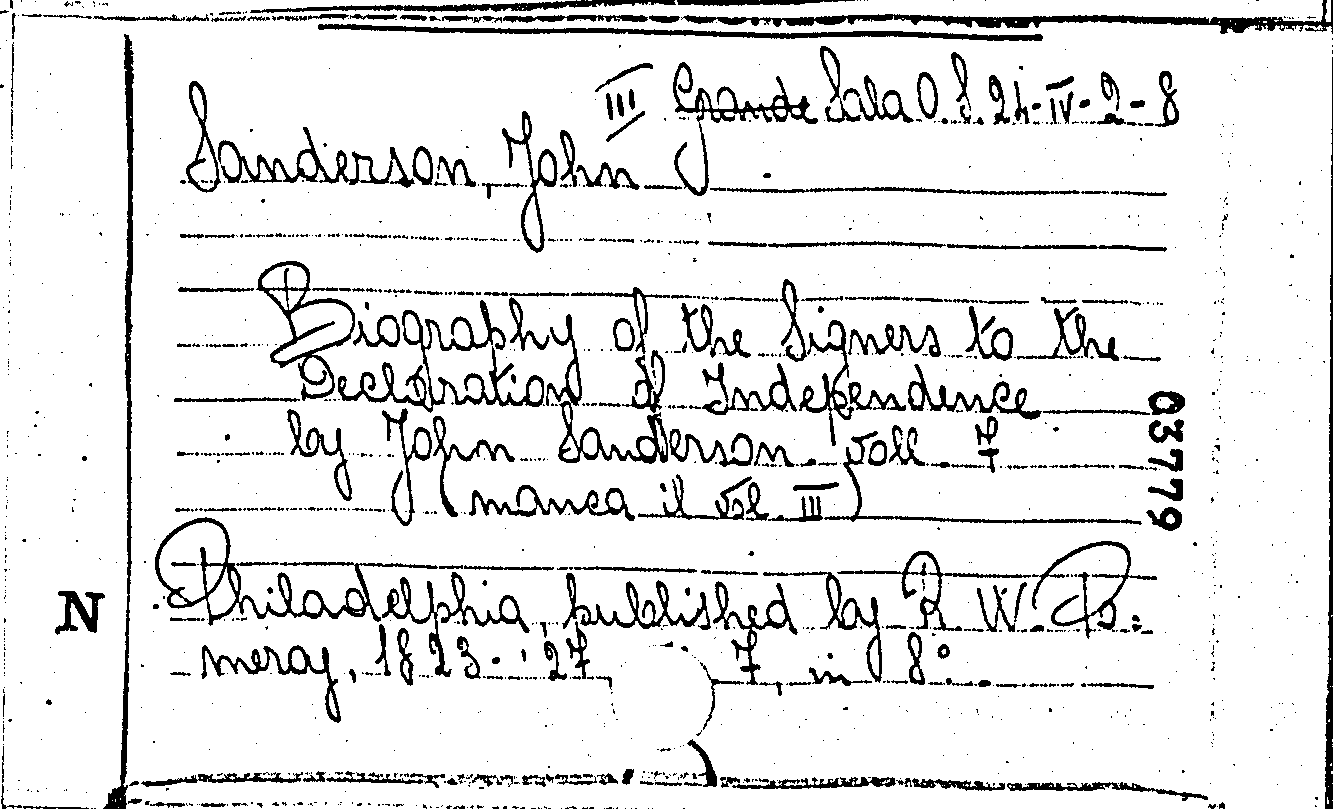 III Grande Sala O. S. 24-IV-2-8
Sanderson, John
Biography of the Signers to the
Declaration of Independence
by John Sanderson. voll. 7
(manca il vol. III)
Philadelphia, published by R. W. Po:
meroy, 1823-'27 7, in 8°.
N
63779